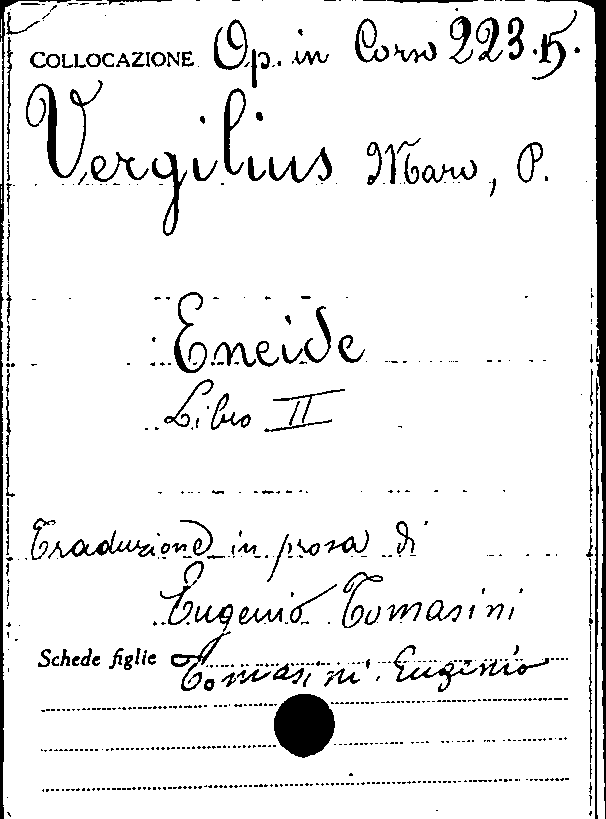 COLLOCAZIONE Op. in Corso 223.15.
Vergilius Maro, P.
Eneide
Libro II
Traduzione in prosa di
Eugenio Tomasini
Schede figlie Tomasini Eugenio